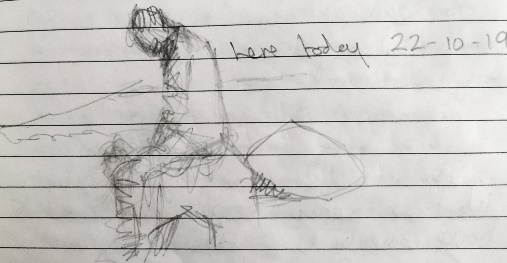 here today 22-10-19